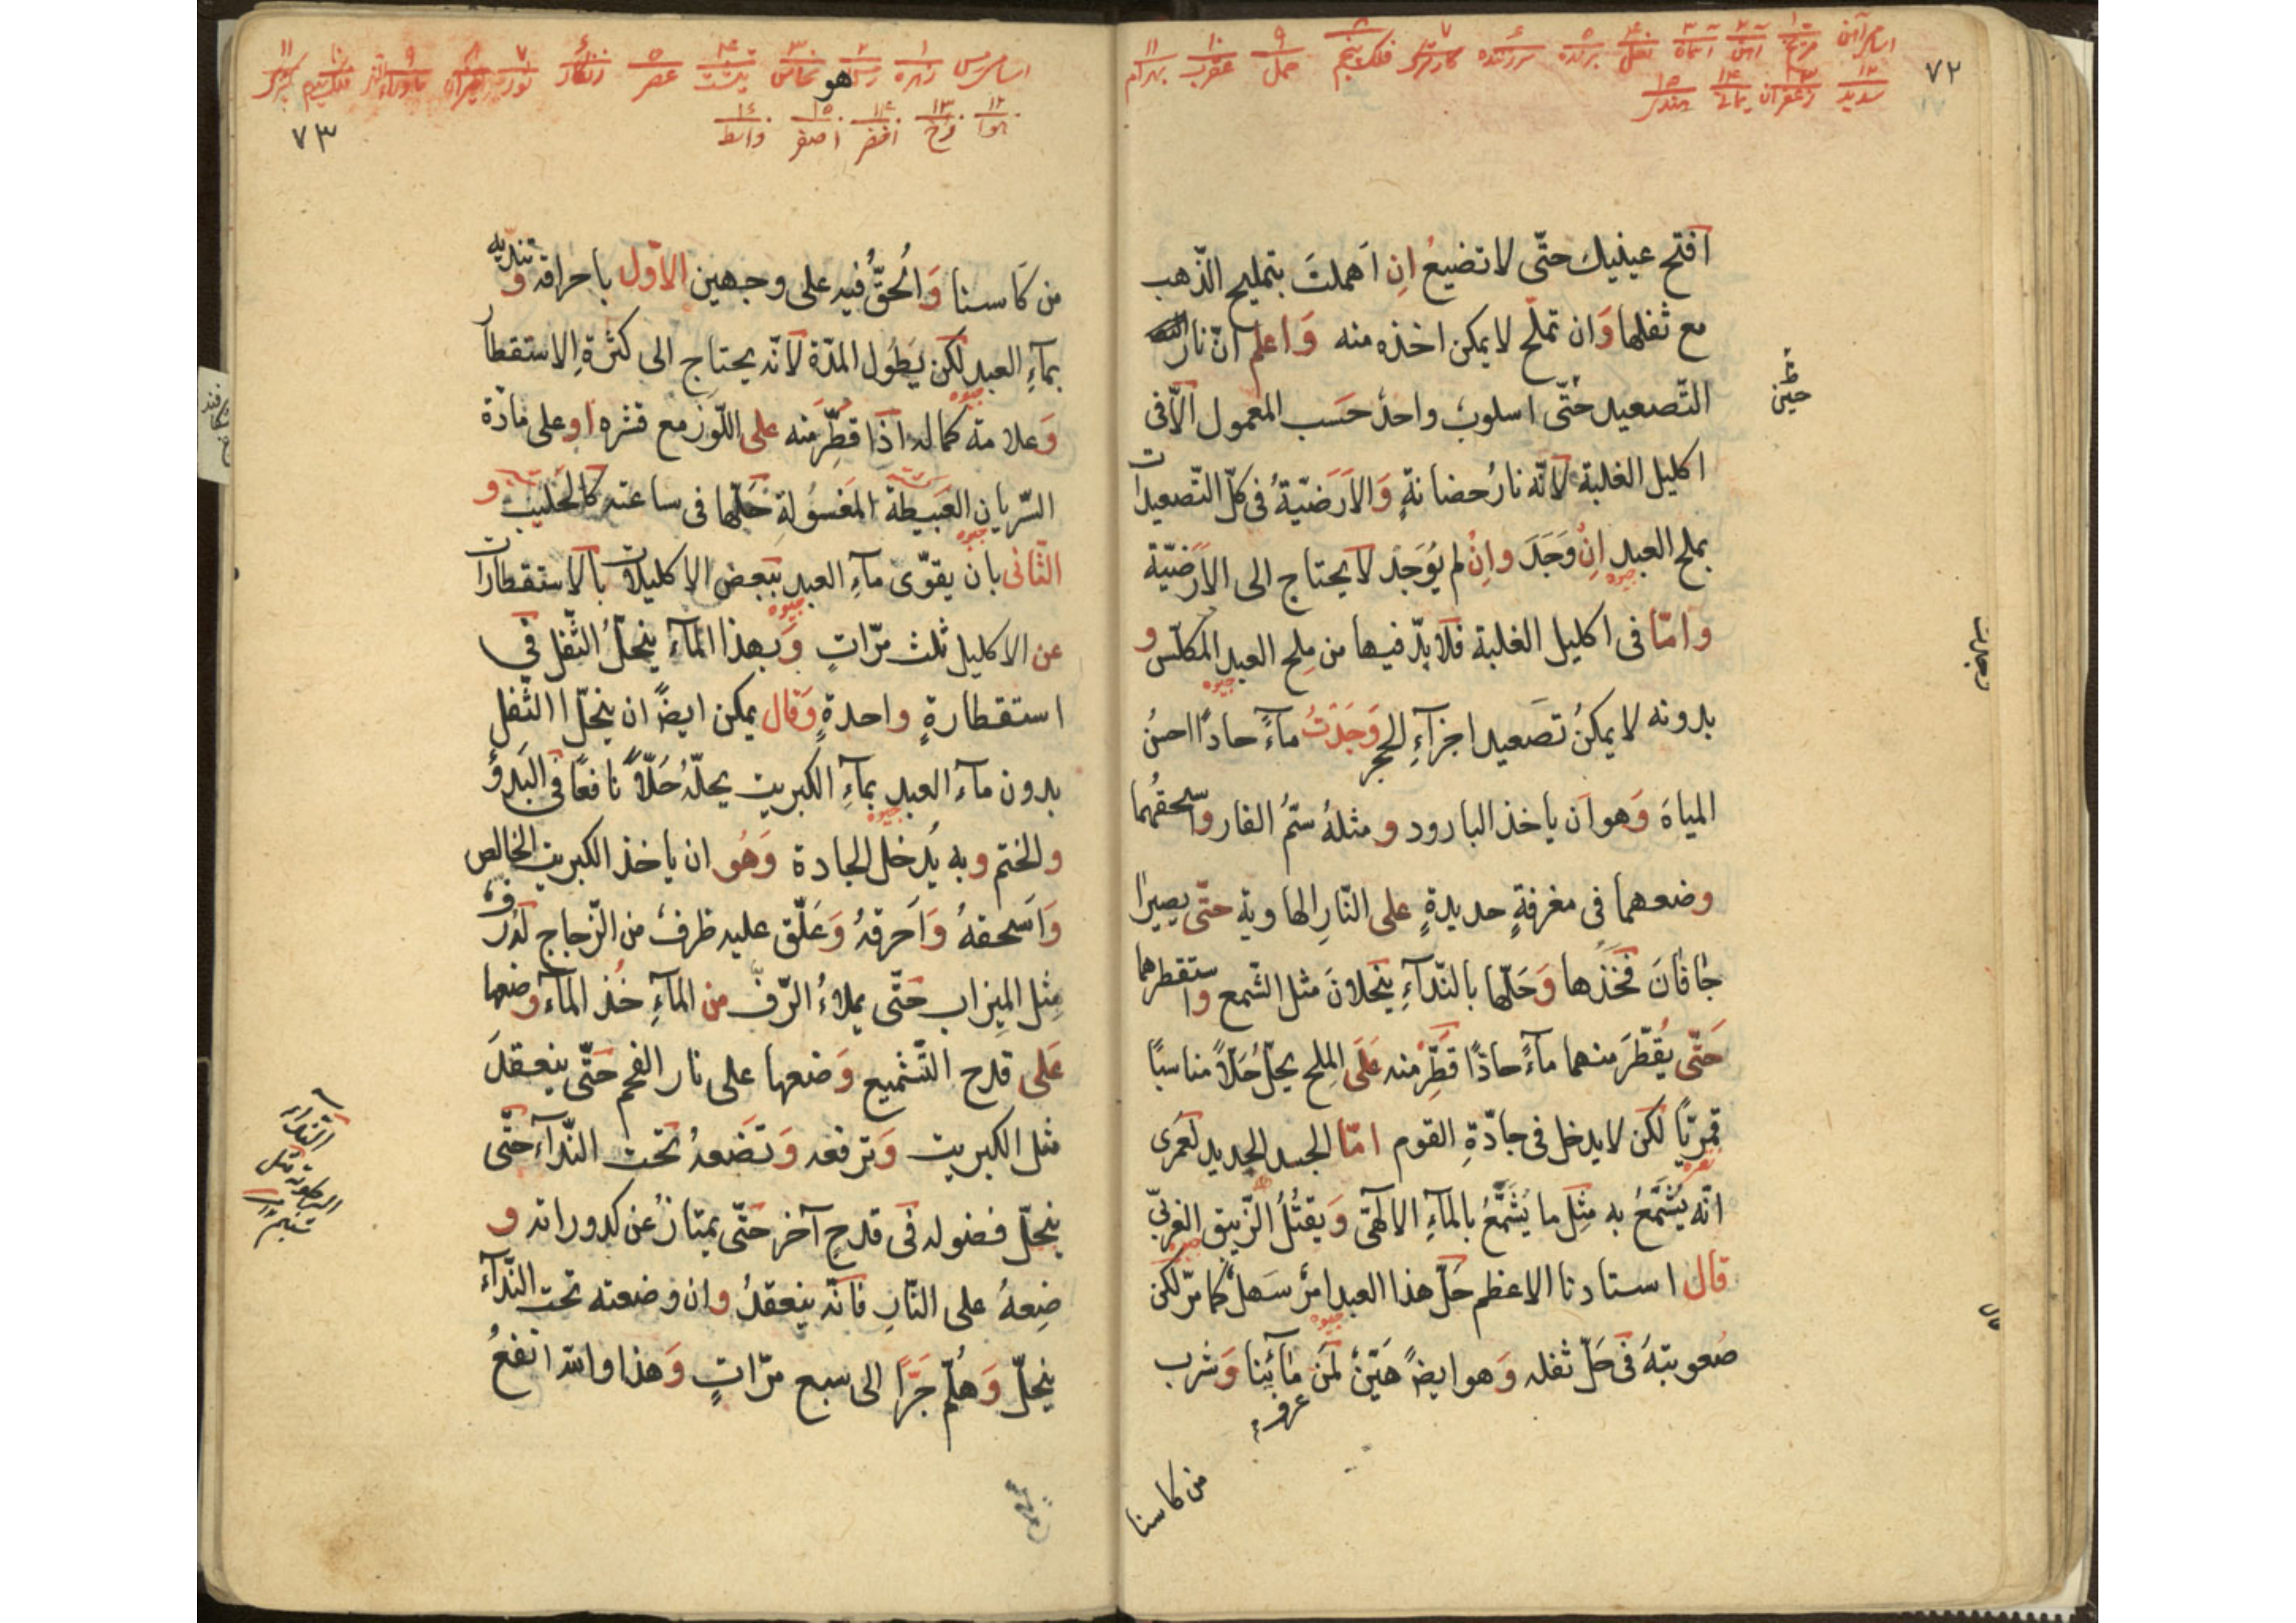 ٧٢
اسامی آهن مریخ آهن
سدید زعفران
افتح عينيك حتّى لا تضيعُ اِن اَهملتَ بتمليح الذّهب
مع ثفلها وَان تملّح لا يمكن اخذه منه وَاعلم انّ نار
التّصعيد حتّى اسلوبٌ واحدٌ حَسَب المعمول الّا فى
حين
اكليل الغلبة لانّه نارُ حضانةٍ وَالاَرَضيّةُ فى كلّ التّصعيدات
بملح العبد اِنْ وَجَدَ واِنْ لم يُوَجَد لا يحتاج الى الاَرَضيّة
جیوه
وامّا فى اكليل الغلبة فلا بدّ فيها من مِلح العبد المكلّس و
جیوه
بدونه لا يمكنُ تصَعيد اجزآءِ الحجر وَجَدْتُ مآءً حادًا احسنُ
المياهَ وَهو اَن ياخذ البارود و مثلهُ سَمُّ الفار واسحقهُما
وضعهما فى مغرفةٍ حديدةٍ على النّارِ الهاوية حتّى يصيرا
جافانَ فخذها وَحَلّها بالنّدآءِ ينحلانَ مثل الشّمع واستقطرهما
حَتّى يُقطّرَ منهما مآءً حاذًا قَطِّرْ منه عَلَى المِلح يحلّ حَلّاً مناسبًا
قمريّاً لكن لا يدخل فى جادّةِ القوم امّا الجسد الجديد لَعَمرى
انّه يُشَمَّعُ به مِثِل ما يُشَمَّعُ بالمآءِ الالٰهىّ وَيقتُلُ الزّيبق الغربىّ
قال استادنا الاعظم حَلّ هذا العبد امرٌ سَهلٌ كما مرّ لكن
جیوه
صُعوبتهَ فى حَلّ ثفله وَهو ايضًا هَيّنٌ لمَن مآئنا وَشرب
عرف
من كاسنا
اسامی مس زهره
هو
نحاس
هوا فرخ اخضر اصفر واسط
٧٣
من كَاسنا وَالحَقُّ فيه على وجهين الاوّل باحراقه و تنديه
بمآءِ العبد لكن يَطُول المدّة لانّه يحتاج الى كثرة الاستقطار
جیوه
وَعلامة كماله اذا قطِّرَ منه على اللّوز مع قشره او على مادّة
السّريانِ العَبيطة المَغسُولة حَلّها فى ساعته كالحليب و
الثّانى بان يقوّى مآءِ العبد ببعض الاكليلات بالاستقطارات
جیوه
عن الاكليل ثلث مرّاتٍ وَبهذا المآءِ ينحلّ الثّفل فى
استقطارةٍ واحدةٍ وَقال يمكن ايضًا ان ينحلّ الثّفل
بدون مآء العبد بمآءِ الكبريت يحلّهُ حَلّاً نافعًا فى البَدؤ
جیوه
والختم وبه يُدخل الجادة وَهُو ان ياخذ الكبريت الخالص
وَاَسحقهُ وَاَحرقهُ وَعَلّق عليه ظرفٌ من الزّجاج لَهُ
مِثل المِيزاب حَتّى يملاءُ الرّفّ من المآءِ خُذ المآء وضعها
عَلى قدح التّشميع وَضعها على نار الفحم حَتّى ينعقلَ
مثل الكبريت وَترفعه وَتضَعهُ تحت النّدآءِ حَتّى
ينحلّ فضوله فى قدحٍ آخر حَتّى يمتازُ عن كدوراته و
ضِعهُ على النّارِ فانّه ينعقدُ وان وضعته تحت النّدآءِ
ينحلّ وَهلُمّ جَرّاً الى سبع مرّاتٍ وَهذا والله انفعُ